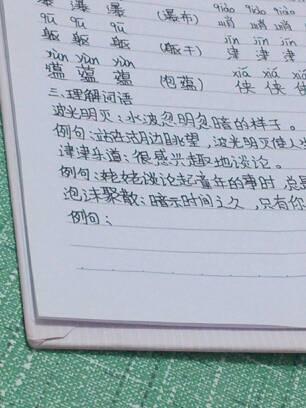 瀑 瀑 瀑 (瀑布) 峭 峭 峭
qū qū qū jīn jīn jīn
躯 躯 躯 (躯干) 津 津 津
yùn yùn yùn xiá xiá
蕴 蕴 蕴 (包蕴) 侠 侠 侠
三.理解词语
波光明灭:水波忽明忽暗的样子。
例句:站在湖边眺望,波光明灭使人
津津乐道:很感兴趣地谈论。
例句:姥姥谈论起童年的事时,总是
泡沫聚散:暗示时间之久,只有你
例句: